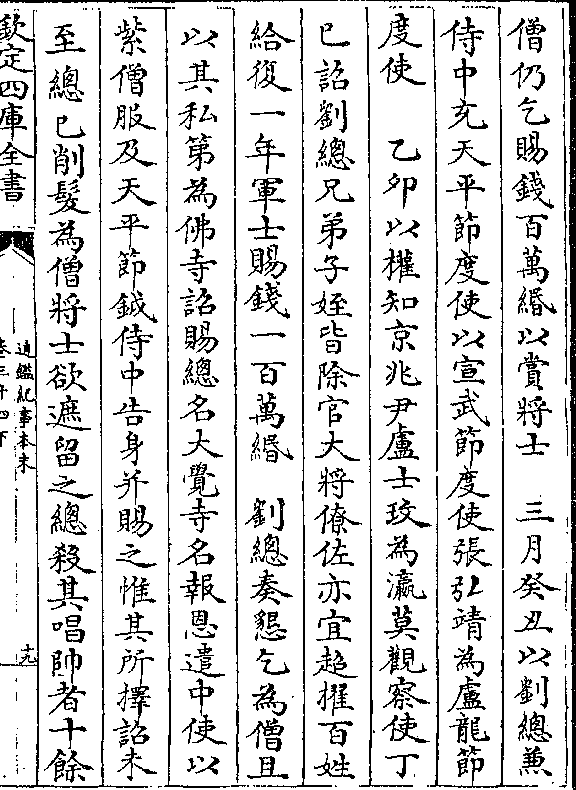 僧仍乞賜錢百萬緡以賞將士　三月癸丑以劉總兼
侍中充天平節度使以宣武節度使張弘靖為盧龍節
度使　乙卯以權知京兆尹盧士玫為瀛莫觀察使丁
巳詔劉總兄弟子姪皆除官大將僚佐亦宜超擢百姓
給復一年軍士賜錢一百萬緡　劉總奏懇乞為僧且
以其私第為佛寺詔賜總名大覺寺名報恩遣中使以
紫僧服及天平節鉞侍中告身并賜之惟其所擇詔未
至總已削髮為僧將士欲遮留之總殺其唱帥者十餘
欽定四庫全書
通鑑紀事本末
卷三十四下
十九